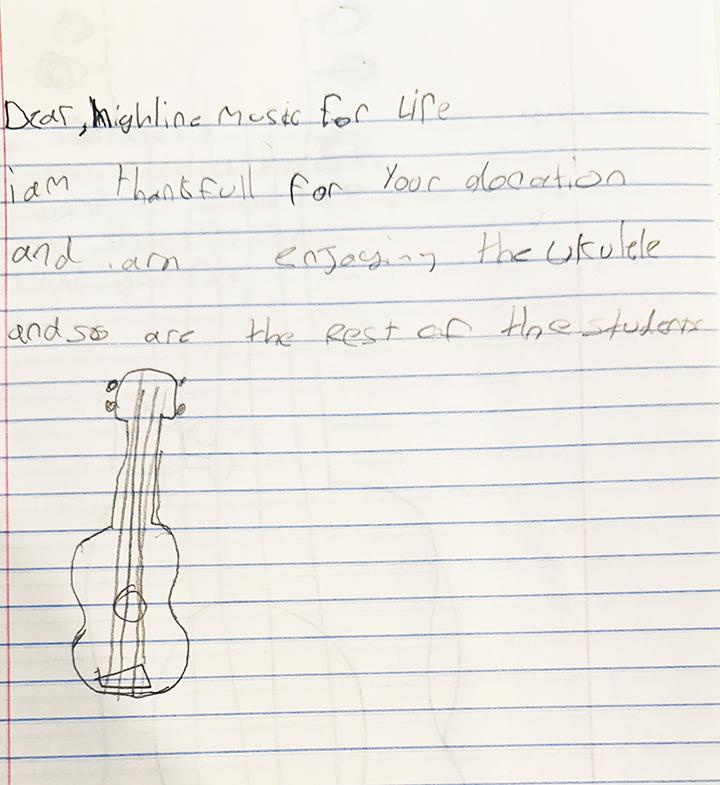 Dear, highline Music for Life
i am thankfull for your donation
and i am enjoying the ukulele
and so are the rest of the students